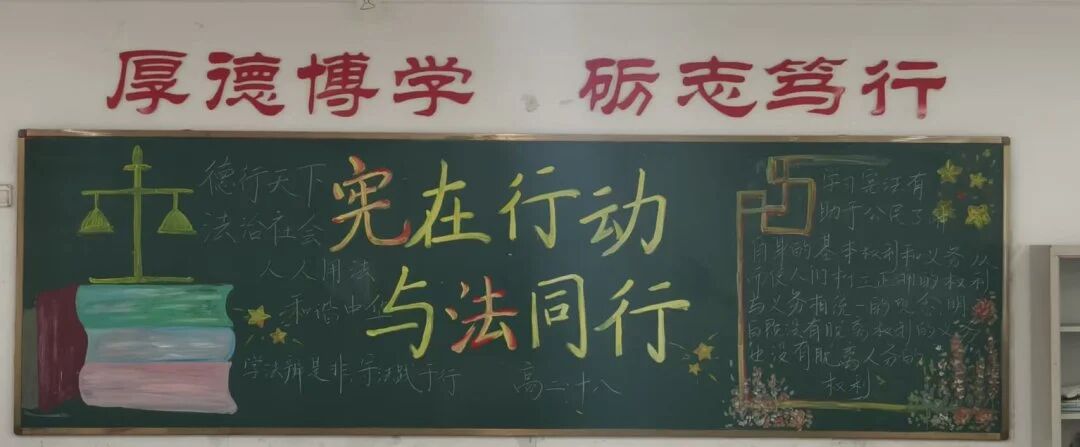 厚德博学 砺志笃行
德行天下
法治社会
人人用法
和谐中华
学法辨是非 守法践于行
宪在行动
与法同行
高二十八
学习宪法有
助于公民了解
自身的基本权利和义务从
而使人们树立正确的权利
与义务相统一的观念,明
白既没有脱离权利的义务
也没有脱离义务的
权利